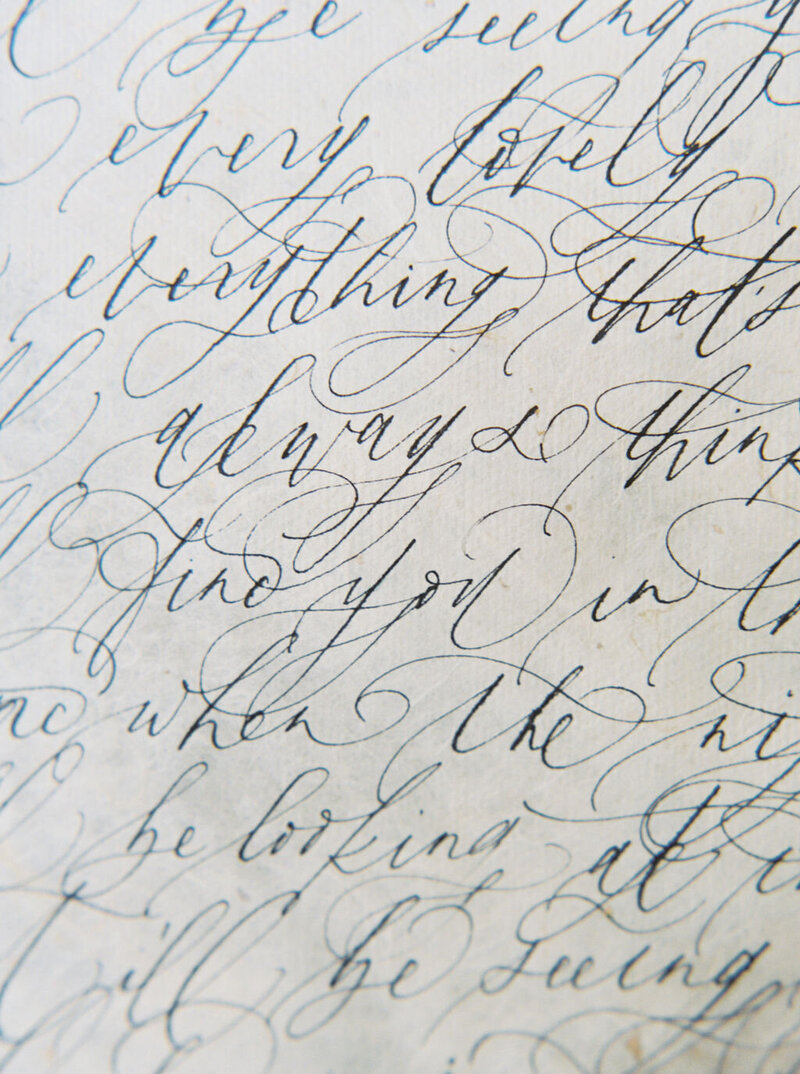 be seeing
every lovely
everything that's
always thin
find you in th
nd when the ni
be looking at
ill be seeing